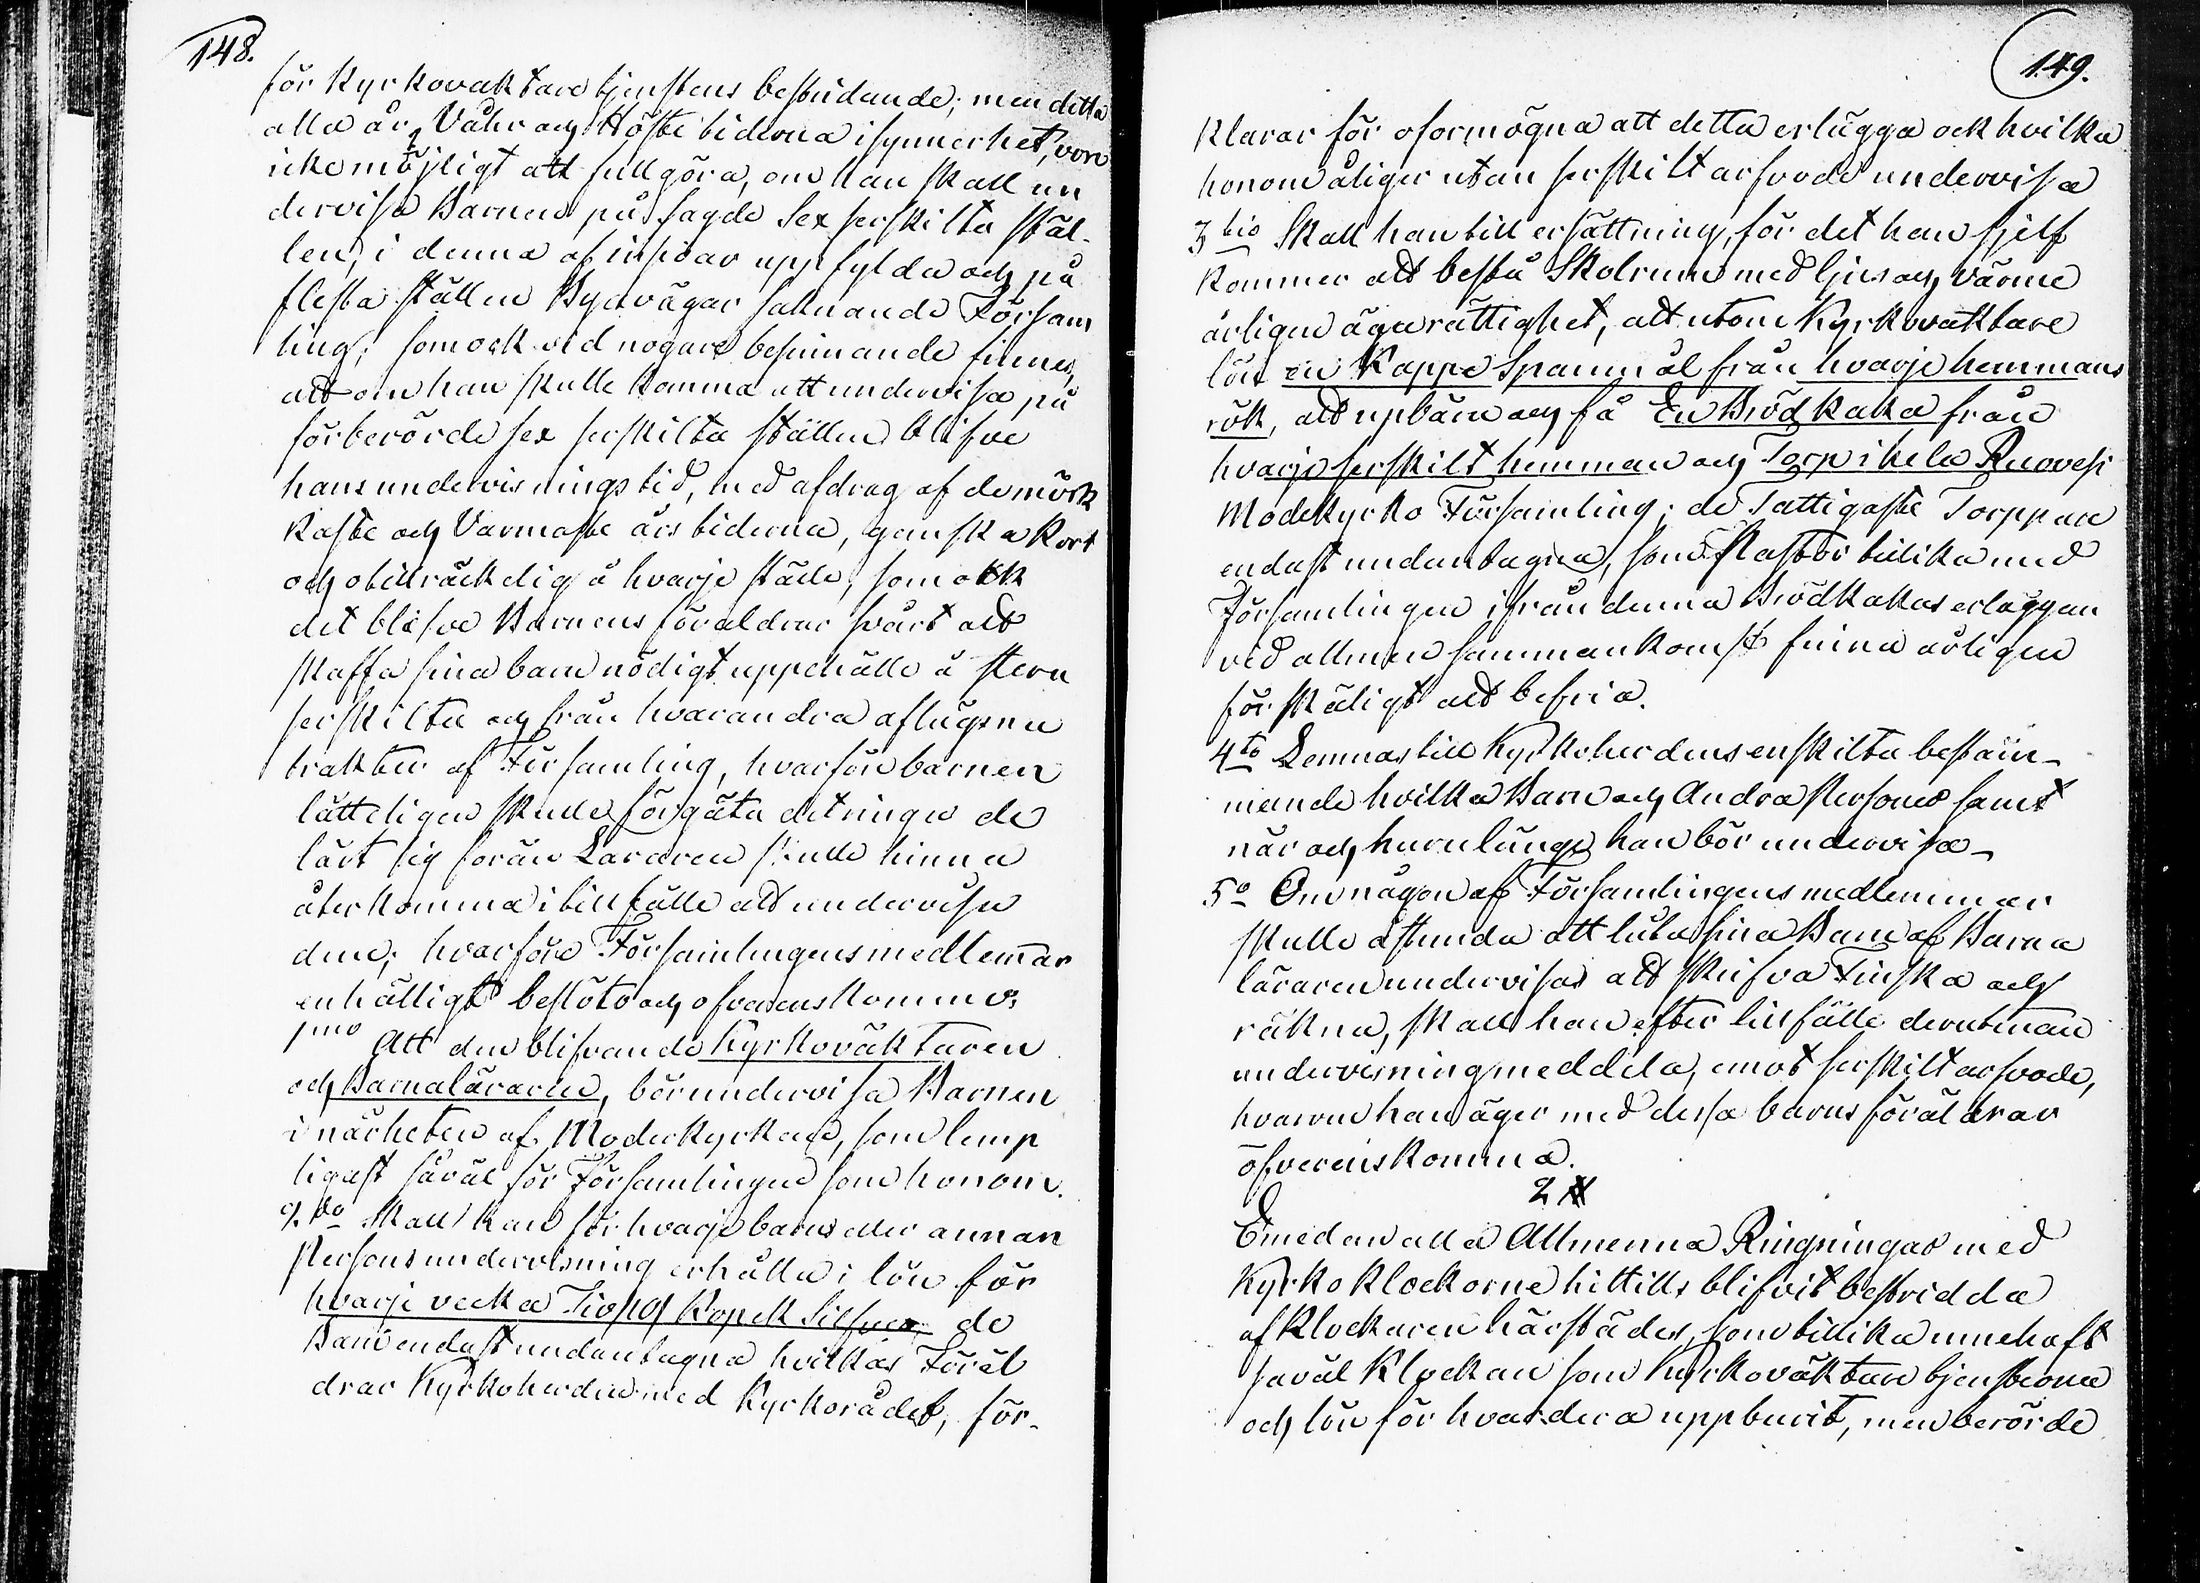 148.
för Kyrkovaktare tjenstens bestridande; men detta
alla år, Våhr och Höste tiderna i synnerhet, vore
icke möjligt att fullgöra, om han skall un
dervisa Barnen på sagde Sex serskilta stäl-
len, i denna af insjöar uppfylda och på
flesta ställen Byavägar saknande Försam
ling; som ock vid nogare besinnande finnes,
att om han skulle komma att undervisa på
förberörde sex serskilta ställen blifve
hans undervisnings tid, med afdrag af de mörk
kaste och Varmaste års tiderna, ganska kort
och otillräckelig å hvarje ställe, som ock
det blifve Barnens föräldrar svårt att
skaffa sina barn nödigt uppehälle å flera
serskilta och från hvarandra aflägsna
trakter af Församling, hvarföre barnen
lätteligen skulle förgäta det ringa de
lärt sig förän Läraren skulle hinna
återkomma i tillfälle att undervisa
dem; hvarföre Församlingens medlemmar
enhälligt beslöto och öfverenskommo;
1mo Att den blifvande Kyrkoväktaren
och Barnaläraren, bör undervisa Barnen
i närheten af Moderkyrkan, som lämp
ligast såväl för Församlingen som honom.
2do Skall han för hvarje barns eller annan
Persons undervisning erhålla i lön för
hvarje vecka Tio Kopek Silfver, de
Barn endast undantagna hvilkas Föräl
drar Kyrkoherden med Kyrkorådet, för-
149.
klarar för oförmögna att detta erlägga och hvilka
honom åligger utan serskilt arfvode undervisa
3tio Skall han till ersättning, för det han sjelf
kommer att bestå Skolrum med ljus och Värme
årligen äga rättighet, att utom Kyrkovaktare
lön en Kappe Spannmål från hvarje hemmans
rök, att upbära och få En Brödkaka från
hvarje serskilt hemman och Torp i hela Ruovesi
Moderkyrko Församling; de Fattigaste Torppare
endast undantagna, som Pastor tillika med
Församlingen ifrån denna Brödkakas erläggan
vid allmän sammankomst finna årligen
för skäligt att befria.
4to Lemnas till Kyrkoherdens enskilta bestäm-
mande hvilka Barn och Andra Personer samt
när och huru länge han bör undervisa-
5o Om någon af Församlingens medlemmar
skulle åstunda att låta sina Barn af Barna
läraren undervisas att skrifva Finska och
räkna, skall han efter tillfälle derutinnan
undervisning meddela, emot serskilt arfvode,
hvarom han äger med dessa barns föräldrar
öfverenskomma.
2 §
Emedan alla Allmenna Ringningar med
Kyrkoklockorne hittills blifvit bestridda
af Klockaren härstädes, som tillika innehaft
såväl Klockare som Kyrkoväktare tjensterna
och lön för hvardera uppburit, men berörde